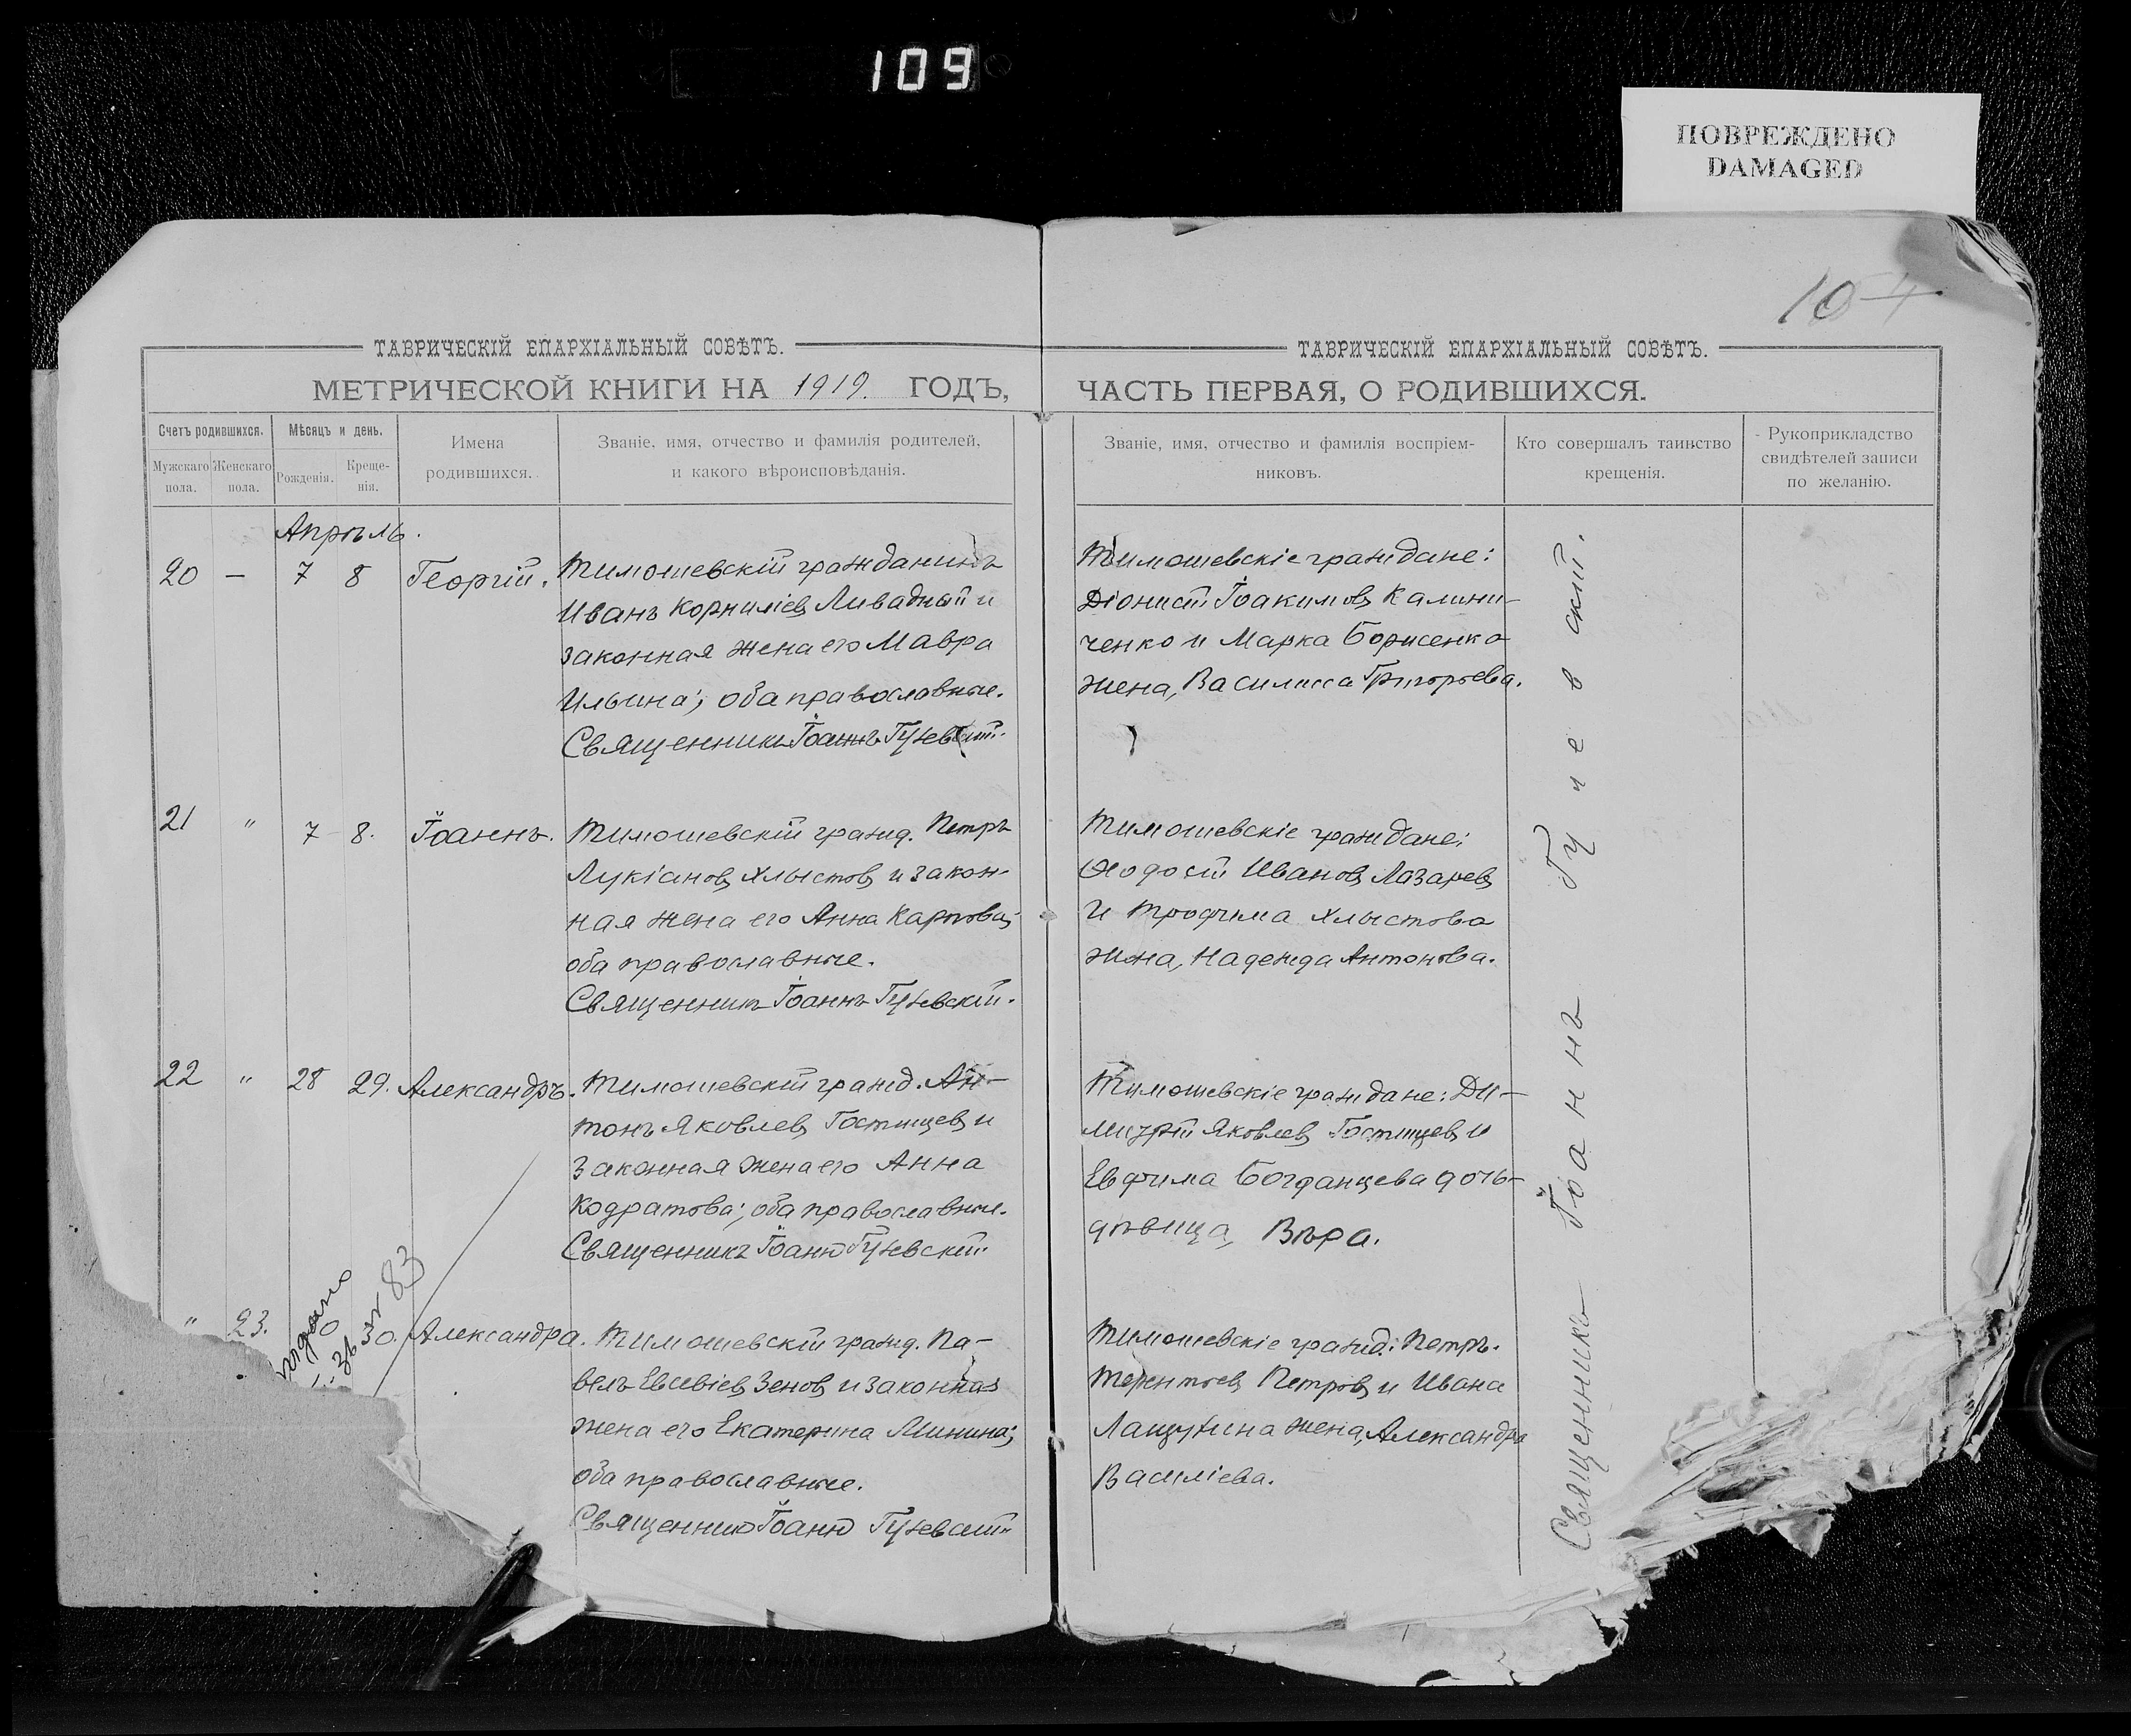 109
ПОВРЕЖДЕНО
DAMAGED
ТАВРИЧЕСКІЙ ЕПАРХІАЛЬНЫЙ СОВѢТЪ.
МЕТРИЧЕСКОЙ КНИГИ НА 1919. ГОДЪ,
Счетъ родившихся.
Мужскаго пола.
Женскаго пола.
Мѣсяцъ и день.
Рожденія.
Креще-
нія.
Имена
родившихся.
Званіе, имя, отчество и фамилія родителей,
и какого вѣроисповѣданія.
Апрѣль.
20 — 7 8 Георгій. Тимошевскій гражданинъ
Иванъ Корниліевъ Ливадный и
законная жена его Мавра
Ильина; оба православные.
Священникъ Іоаннъ Гучевскій.
21 " 7 8. Іоаннъ. Тимошевскій гражд. Петръ
Лукіановъ Хлыстовъ и закон-
ная жена его Анна Карпова;
оба православные.
Священникъ Іоаннъ Гучевскій.
22 " 28 29. Александръ. Тимошевскій гражд. Ан-
тонъ Яковлевъ Гостищевъ и
законная жена его Анна
Кодратова; оба православные.
Священникъ Іоаннъ Гучевскій
" 23. 30. Александра. Тимошевскій гражд. Па-
велъ Евсевіевъ Зеновъ и законная
жена его Екатерина Минина;
оба православные.
Священникъ Іоаннъ Гучевскій
83
ТАВРИЧЕСКІЙ ЕПАРХІАЛЬНЫЙ СОВѢТЪ.
ЧАСТЬ ПЕРВАЯ, О РОДИВШИХСЯ.
Званіе, имя, отчество и фамилія воспріем-
никовъ.
Кто совершалъ таинство
крещенія.
Рукоприкладство
свидѣтелей записи
по желанію.
Тимошевскіе граждане:
Діонисій Іоакимовъ Калини-
ченко и Марка Борисенко
жена, Василисса Григорьева.
Тимошевскіе граждане:
Ѳеодосій Ивановъ Лазаревъ
и Трофима Хлыстова
жена, Надежда Антонова.
Тимошевскіе граждане: Ди-
митрій Яковлевъ Гостищевъ и
Евфима Богданцева дочь-
дѣвица, Вѣра.
Тимошевскіе гражд.: Петръ
Терентьевъ Петровъ и Ивана
Лащухина жена, Александра
Василіева.
Священникъ Іоаннъ Гучевскій.